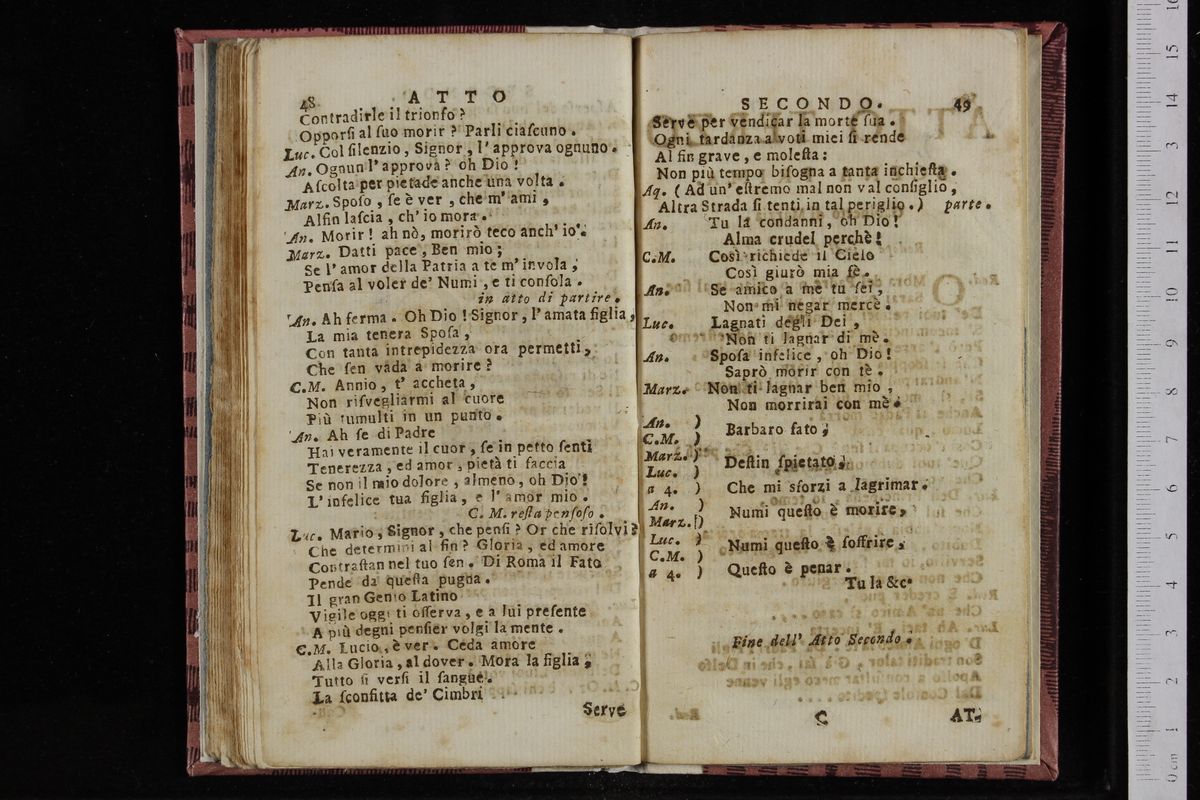 48 ATTO
Contradirle il trionfo ?
Opporſi al ſuo morir ? Parli ciaſcuno .
Luc. Col ſilenzio , Signor , l' approva ognuno .
An. Ognun l' approva ? oh Dio !
Aſcolta per pietade anche una volta .
Marz. Spoſo , ſe è ver , che m' ami ,
Alfin laſcia , ch' io mora .
An. Morir ! ah nò, morirò teco anch' io .
Marz. Datti pace , Ben mio ;
Se l' amor della Patria a te m' invola ,
Penſa al voler de' Numi , e ti conſola .
in atto di partire .
An. Ah ferma . Oh Dio ! Signor , l' amata figlia ,
La mia tenera Spoſa ,
Con tanta intrepidezza ora permetti,
Che ſen vada a morire ?
C.M. Annio , t' accheta ,
Non riſvegliarmi al cuore
Più tumulti in un punto .
An. Ah ſe di Padre
Hai veramente il cuor , ſe in petto ſenti
Tenerezza , ed amor , pietà ti faccia
Se non il mio dolore , almeno , oh Dio !
L' infelice tua figlia , e l' amor mio .
C. M. reſta penſoſo .
Luc. Mario , Signor , che penſi ? Or che riſolvi ?
Che determini al fin ? Gloria , ed amore
Contraſtan nel tuo ſen . Di Roma il Fato
Pende da queſta pugna .
Il gran Genio Latino
Vigile oggi ti oſſerva , e a lui preſente
A più degni penſier volgi la mente .
C.M. Lucio , è ver . Ceda amore
Alla Gloria , al dover . Mora la figlia ;
Tutto ſi verſi il ſangue .
La ſconfitta de' Cimbri
Serve
SECONDO. 49
Serve per vendicar la morte ſua .
Ogni tardanza a voti miei ſi rende
Al fin grave , e moleſta :
Non più tempo biſogna a tanta inchieſta .
Aq. ( Ad un' eſtremo mal non val conſiglio ,
Altra Strada ſi tenti in tal periglio . ) parte .
An. Tu la condanni , oh Dio !
Alma crudel perchè !
C.M. Così richiede il Cielo
Così giurò mia fè .
An. Se amico a me tu ſei ,
Non mi negar mercè .
Luc. Lagnati degli Dei ,
Non ti lagnar di mè .
An. Spoſa infelice , oh Dio !
Saprò morir con tè .
Marz. Non ti lagnar ben mio ,
Non morrirai con mè .
An. )
C.M. ) Barbaro fato ,
Marz. )
Luc. ) Deſtin ſpietato ,
a 4. ) Che mi sforzi a lagrimar .
An. )
Marz. ) Numi queſto è morire ,
Luc. )
C.M. ) Numi queſto è ſoffrire ,
a 4. ) Queſto è penar .
Tu la &c.
Fine dell' Atto Secondo .
C AT-